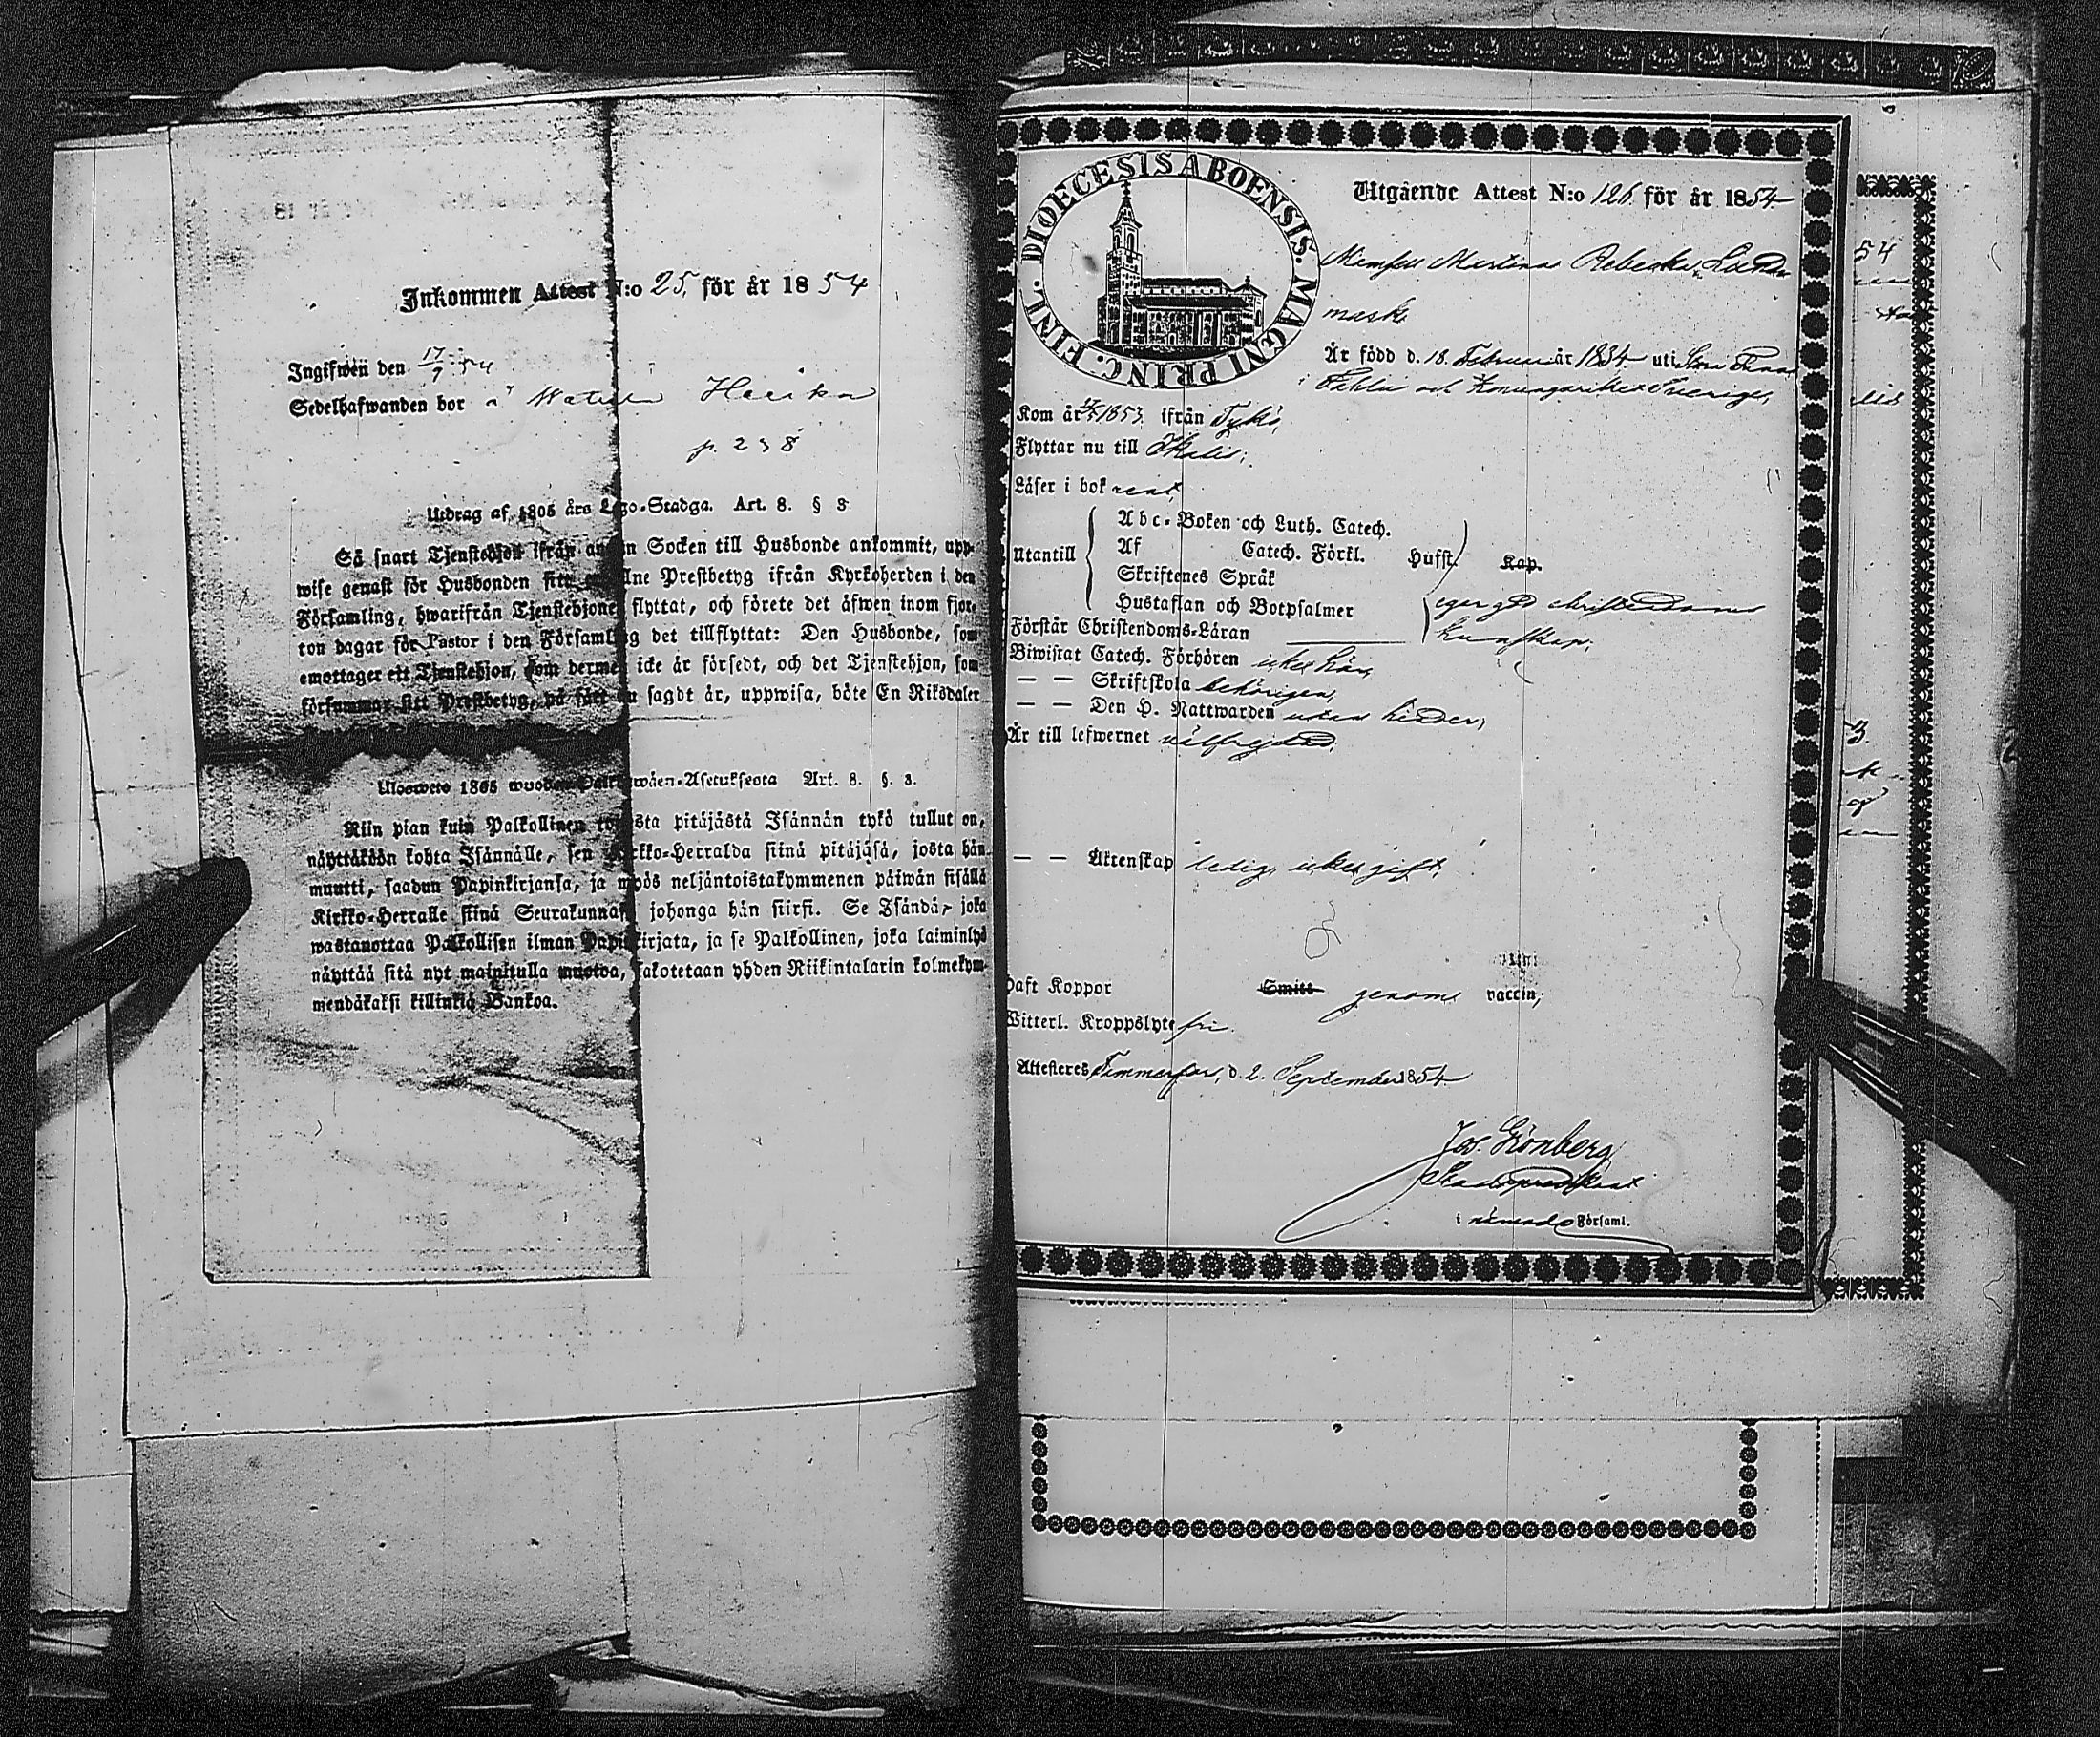 Inkommen Attest N:o 25. för år 1854
Ingifwen den 17/9 54
Sedelhafwanden bor å Heiska
p. 238
Utdrag af 1805 års Lego-Stadga. Art. 8. § 3.
Så snart Tjenstehjon ifrån annan Socken till Husbonde ankommit, upp-
wise genast för Husbonden sitt Prestbetyg ifrån Kyrkoherden i den
Församling, hwarifrån Tjenstehjonet flyttat, och förete det äfwen inom fjor-
ton dagar för Pastor i den Församling det tillflyttat: Den Husbonde, som
emottager ett Tjenstehjon, som dermed icke är försedt, och det Tjenstehjon, som
försummar sitt Prestbetyg, på sätt nu sagdt är, uppwisa, böte En Riksdaler
Ulosweto 1805 wuoden Palkkawäen-Asetuksesta Art. 8. §. 3.
Niin pian kuin Palkollinen toisesta pitäjästä Isännän tykö tullut on,
näyttäköön kohta Isännälle, sen Kirkko-Herralda siinä pitäjäsä, josta hän
muutti, saadun Papinkirjansa, ja myös neljäntoistakymmenen päiwän sisällä
Kirkko-Herralle siinä Seurakunnasa johonga hän siirsi. Se Isändä, joka
wastanottaa Palkollisen ilman Papinkirjata, ja se Palkollinen, joka laiminlyö
näyttää sitä nyt mainitulla muotoa, sakotetaan yhden Riikintalarin kolmekym-
mendäkaksi killinkiä Bankoa.
DIOECESIS ABOENSIS. MAGNI PRINC. FINL.
Utgående Attest N:o 126 för år 1854
Mamsell Martina Rebecka Lind-
mark
Är född d. 18 Februari år 1834 uti Stora
och Konungariket Sverige,
Kom år 1853 ifrån Tykö,
Flyttar nu till Ikalis;
Läser i bok rent,
Utantill
Abc-Boken och Luth. Catech.
Af Catech. Förkl. Hufst. Kap.
Skriftenes Språk
Hustaflan och Botpsalmer
eger god christendoms
kunskap.
Förstår Christendoms-Läran
Biwistat Catech. Förhören icke här,
— — Skriftskola behörigen,
— — Den H. Nattwarden utan hinder,
Är till lefwernet välfrejdad,
— — Äktenskap ledig, icke gift,
Haft Koppor Smitt genom vaccin,
Witterl. Kroppslyte fri.
Attesteras Tammerfors, d. 2. September 1854
Jos. Grönberg
Stadspredikant
i nämnde Församl.
54
3.